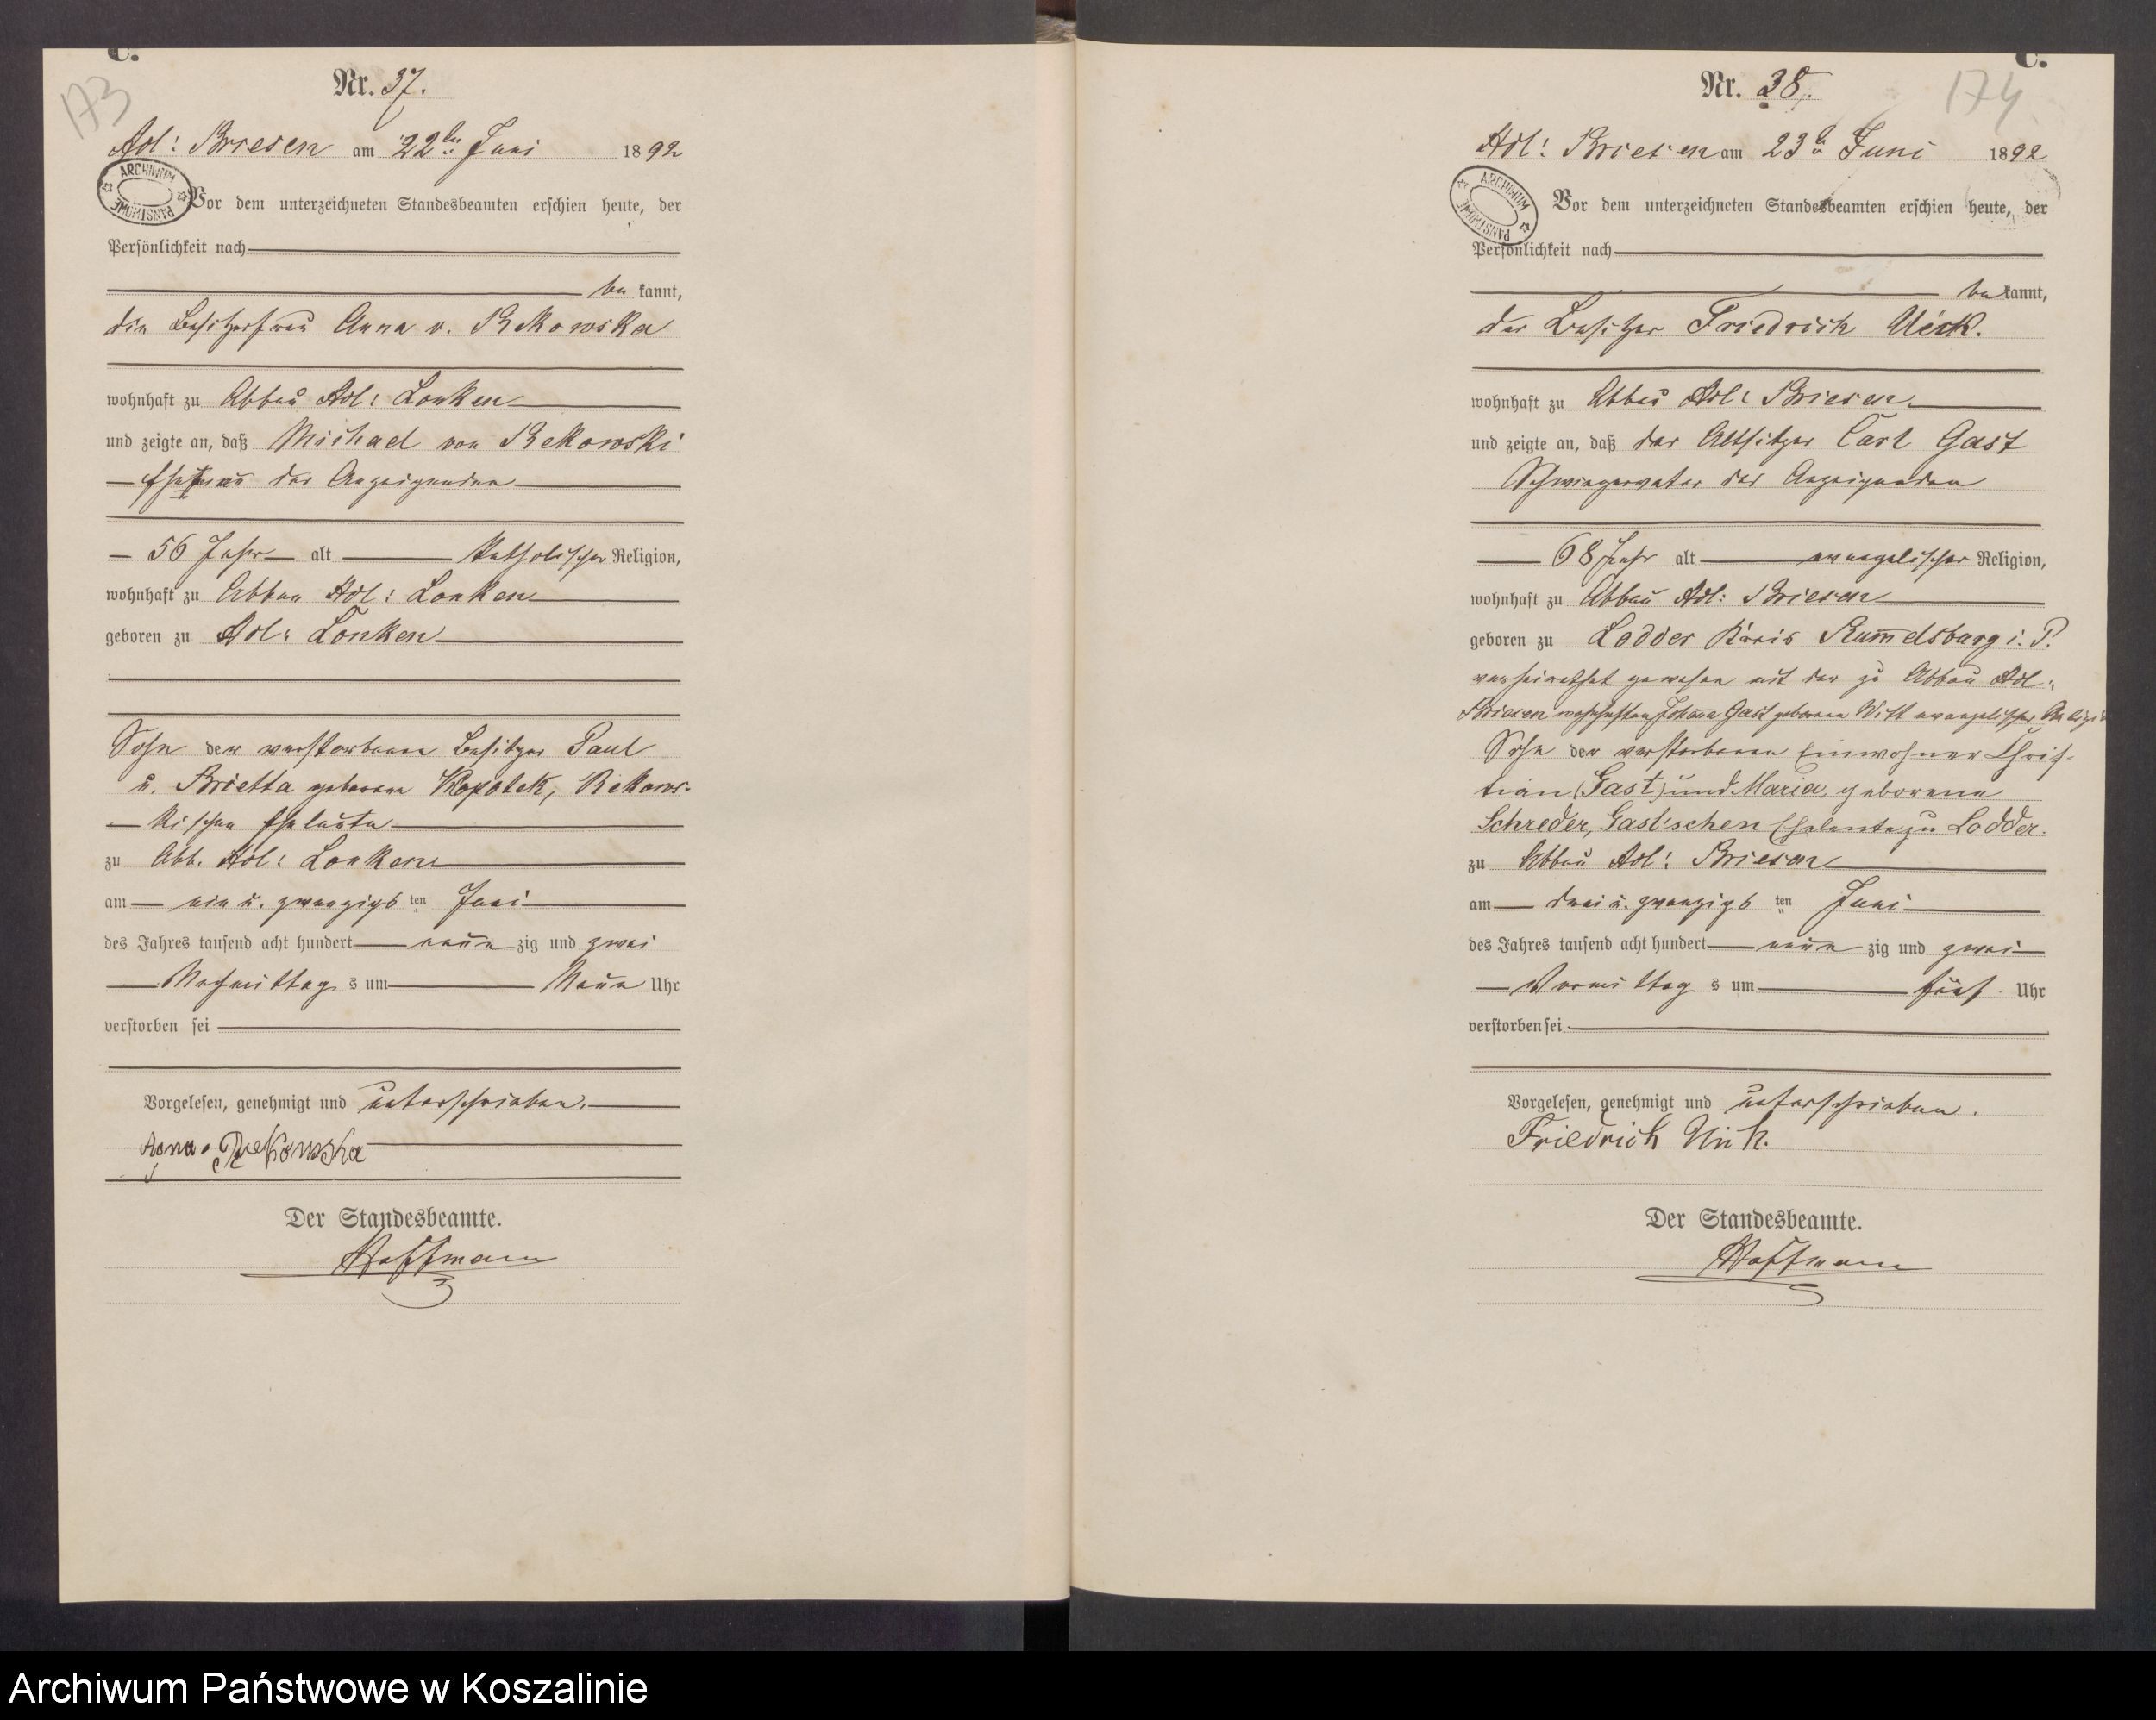 C.
173
Nr. 37.
Adl: Briesen am 22ten Juni 1892
ARCHIWUM PAŃSTWOWE
Vor dem unterzeichneten Standesbeamten erschien heute, der
Persönlichkeit nach
be kannt,
die Besitzerfrau Anna v. Rekowska
wohnhaft zu Abbau Adl: Lonken
und zeigte an, daß Michael von Rekowski
Ehemann der Anzeigenden
56 Jahr alt katholischer Religion,
wohnhaft zu Abbau Adl: Lonken
geboren zu Adl: Lonken
Sohn der verstorbenen Besitzer Paul
u. Brietta geborene Klopotek, Rekows-
kischen Eheleute
zu Abb. Adl: Lonken
am ein u. zwanzigs ten Juni
des Jahres tausend acht hundert neun zig und zwei
Nachmittag s um Neun Uhr
verstorben sei
Vorgelesen, genehmigt und unterschrieben.
Anna Rekowska
Der Standesbeamte.
Hoffmann
C.
174
Nr. 38.
Adl: Briesen am 23 Juni 1892
ARCHIWUM PAŃSTWOWE
Vor dem unterzeichneten Standesbeamten erschien heute, der
Persönlichkeit nach
be kannt,
der Besitzer Friedrich Ueck.
wohnhaft zu Abbau Adl: Briesen
und zeigte an, daß der Altsitzer Carl Gast
Schwiegervater des Anzeigenden
68 Jahr alt evangelischer Religion,
wohnhaft zu Abbau Adl: Briesen
geboren zu Lodder Kreis Rummelsburg i. P.
verheirathet gewesen mit der zu Abbau Adl:
Briesen wohnhaften Johanna Gast geborene Witt evangelischer Religion
Sohn der verstorbenen Einwohner Chris-
tian (Gast) und Maria, geborene
Schreder, Gastischen Eheleute zu Lodder.
zu Abbau Adl: Briesen
am drei u. zwanzigs ten Juni
des Jahres tausend acht hundert neun zig und zwei
Vormittag s um fünf Uhr
verstorben sei
Vorgelesen, genehmigt und unterschrieben.
Friedrich Ück.
Der Standesbeamte.
Hoffmann
Archiwum Państwowe w Koszalinie